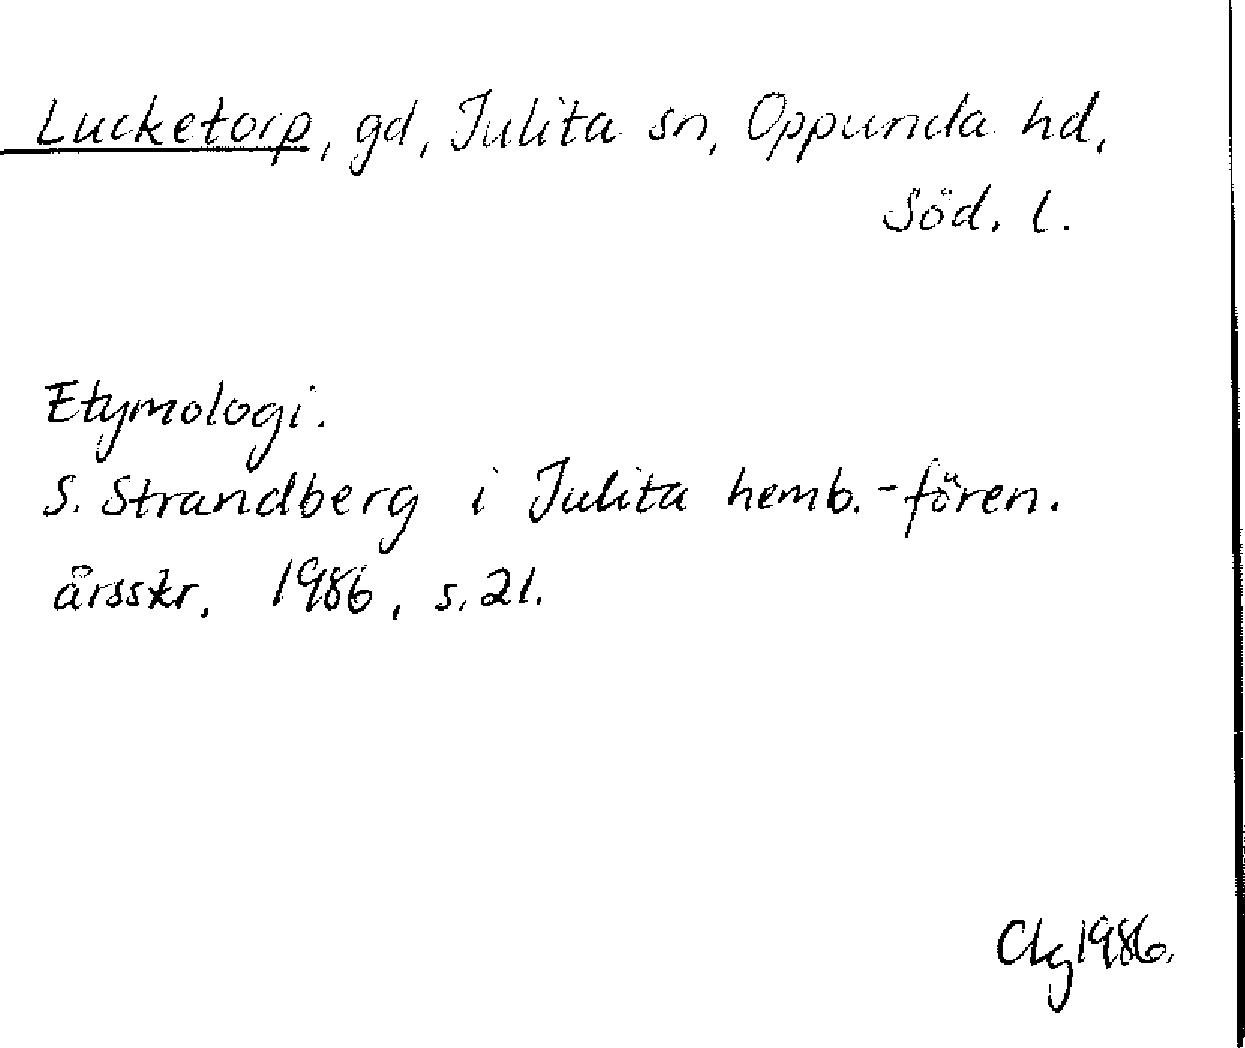 Lucketorp, gd, Julita sn, Oppunda hd,
Söd. l.
Etymologi.
S. Strandberg i Julita hemb.-fören.
årsskr. 1986, s. 21.
Clg 1986.